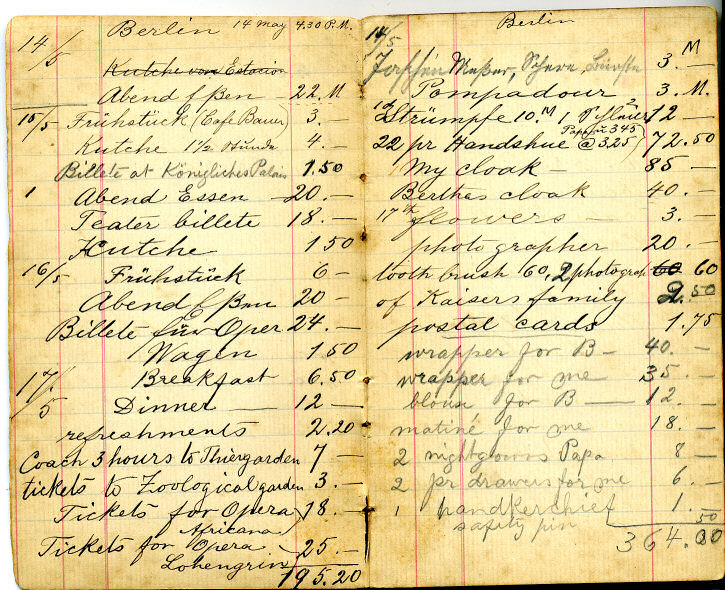 Berlin 14 May 4.30 P.M.
14/5
Kutche von Estacion
Abend Eßen — 22.M
15/5 Frühstück (Café Bauer) 3.—
Kutche 1 1/2 Stunde 4.—
Billete at Königliches Palais 1.50
1 Abend Essen — 20.—
Teater billete 18.—
Kutche 1 50
16/5 Frühstück 6 —
Abend Eßen 20 —
Billete für Oper 24.—
Wagen 1 50
17/5 Breakfast 6.50
Dinner — 12 —
refreshments 2.20
Coach 3 hours to Thiergarden 7 —
tickets to Zoological garden 3.—
Tickets for Opera 18.—
Africana
Tickets for Opera 25.—
Lohengrin
195.20
Berlin
14/5
Meßer, Schere, Bürste 3.M
Pompadour 3.M.
Strümpfe 10.M 12 —
Papa pr 3.45
22 pr Handshue @ 3.25 72.50
My cloak — 85 —
Berthas cloak 40.—
17th flowers — 3.—
photographer 20.—
tooth brush 60, 2 photograph 60 60
of Kaisers family 2.50
postal cards 1.75
wrapper for B — 40.—
wrapper for me 35.—
blouse for B — 12.—
matiné for me 18.—
2 nightgowns Papa 8 —
2 pr drawers for me 6.—
1 handkerchief 1.—
safety pin 50
364.